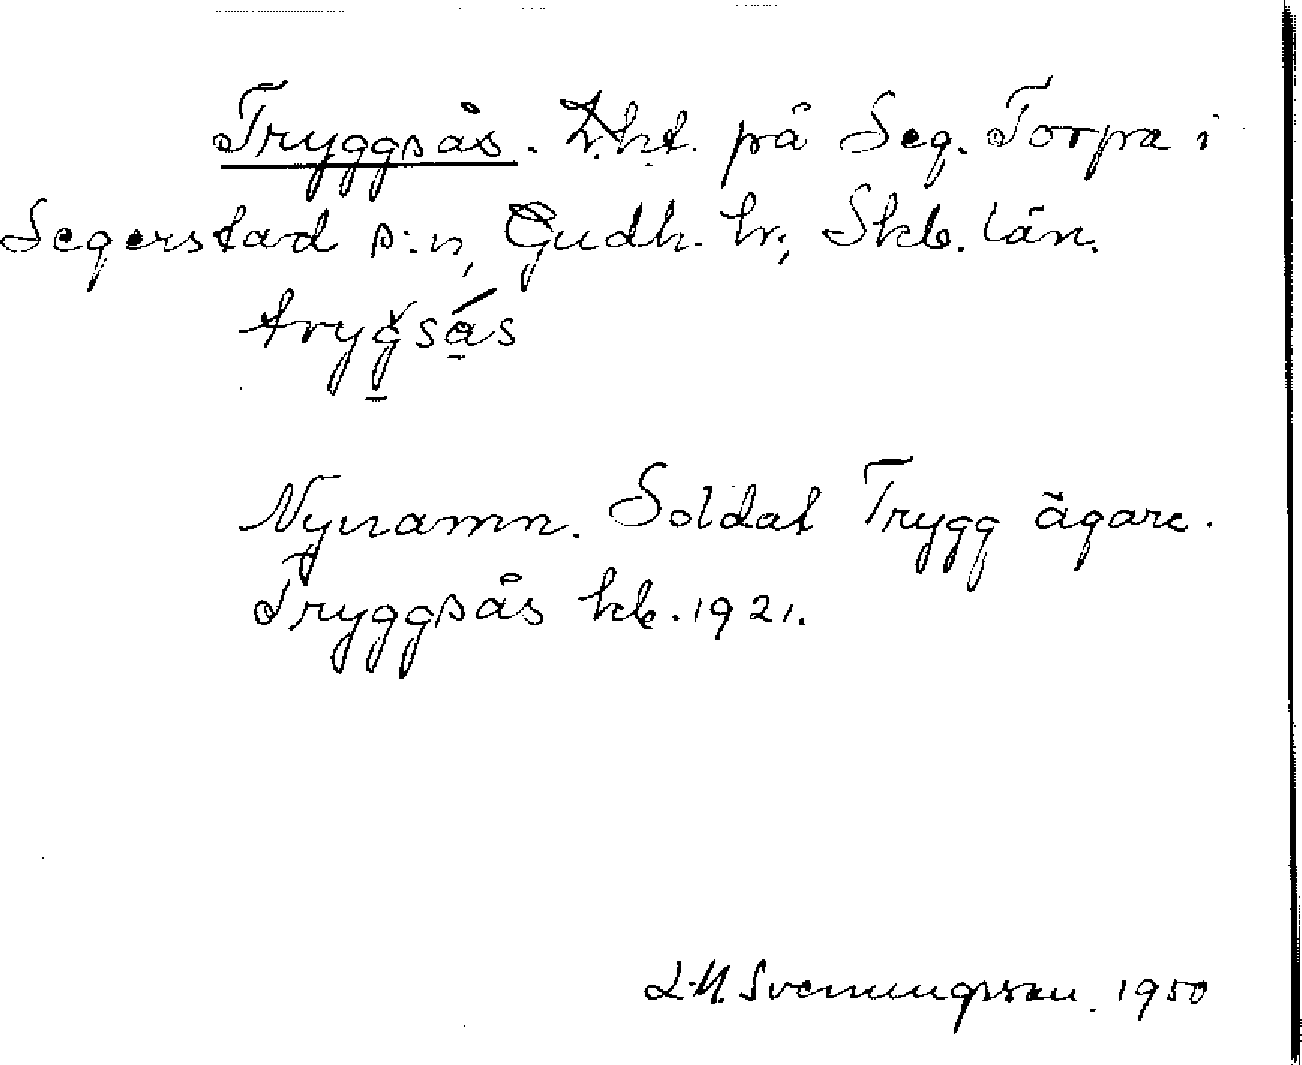 Tryggsås. Lht. på Seg. Torpa i
Segerstad s:n, Gudh. hr., Skb. län.
tryǧsás
Nynamn. Soldat Trygg ägare.
Tryggsås kb. 1921.
L.M. Svenungsson. 1950